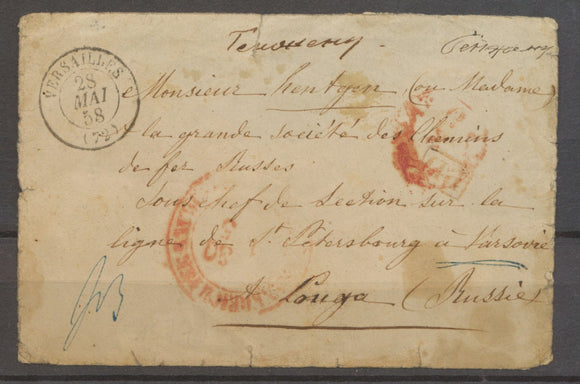 VERSAILLES
28
MAI
58
(72)
Monsieur Hentgen (ou Madame)
à la grande société des Chemins
de fer Russes
Sous chef de Section sur la
ligne de St Pétersbourg à Varsovie
à Louga (Russie)